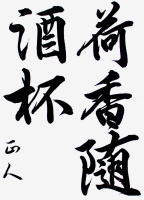 荷香随
酒杯
正人